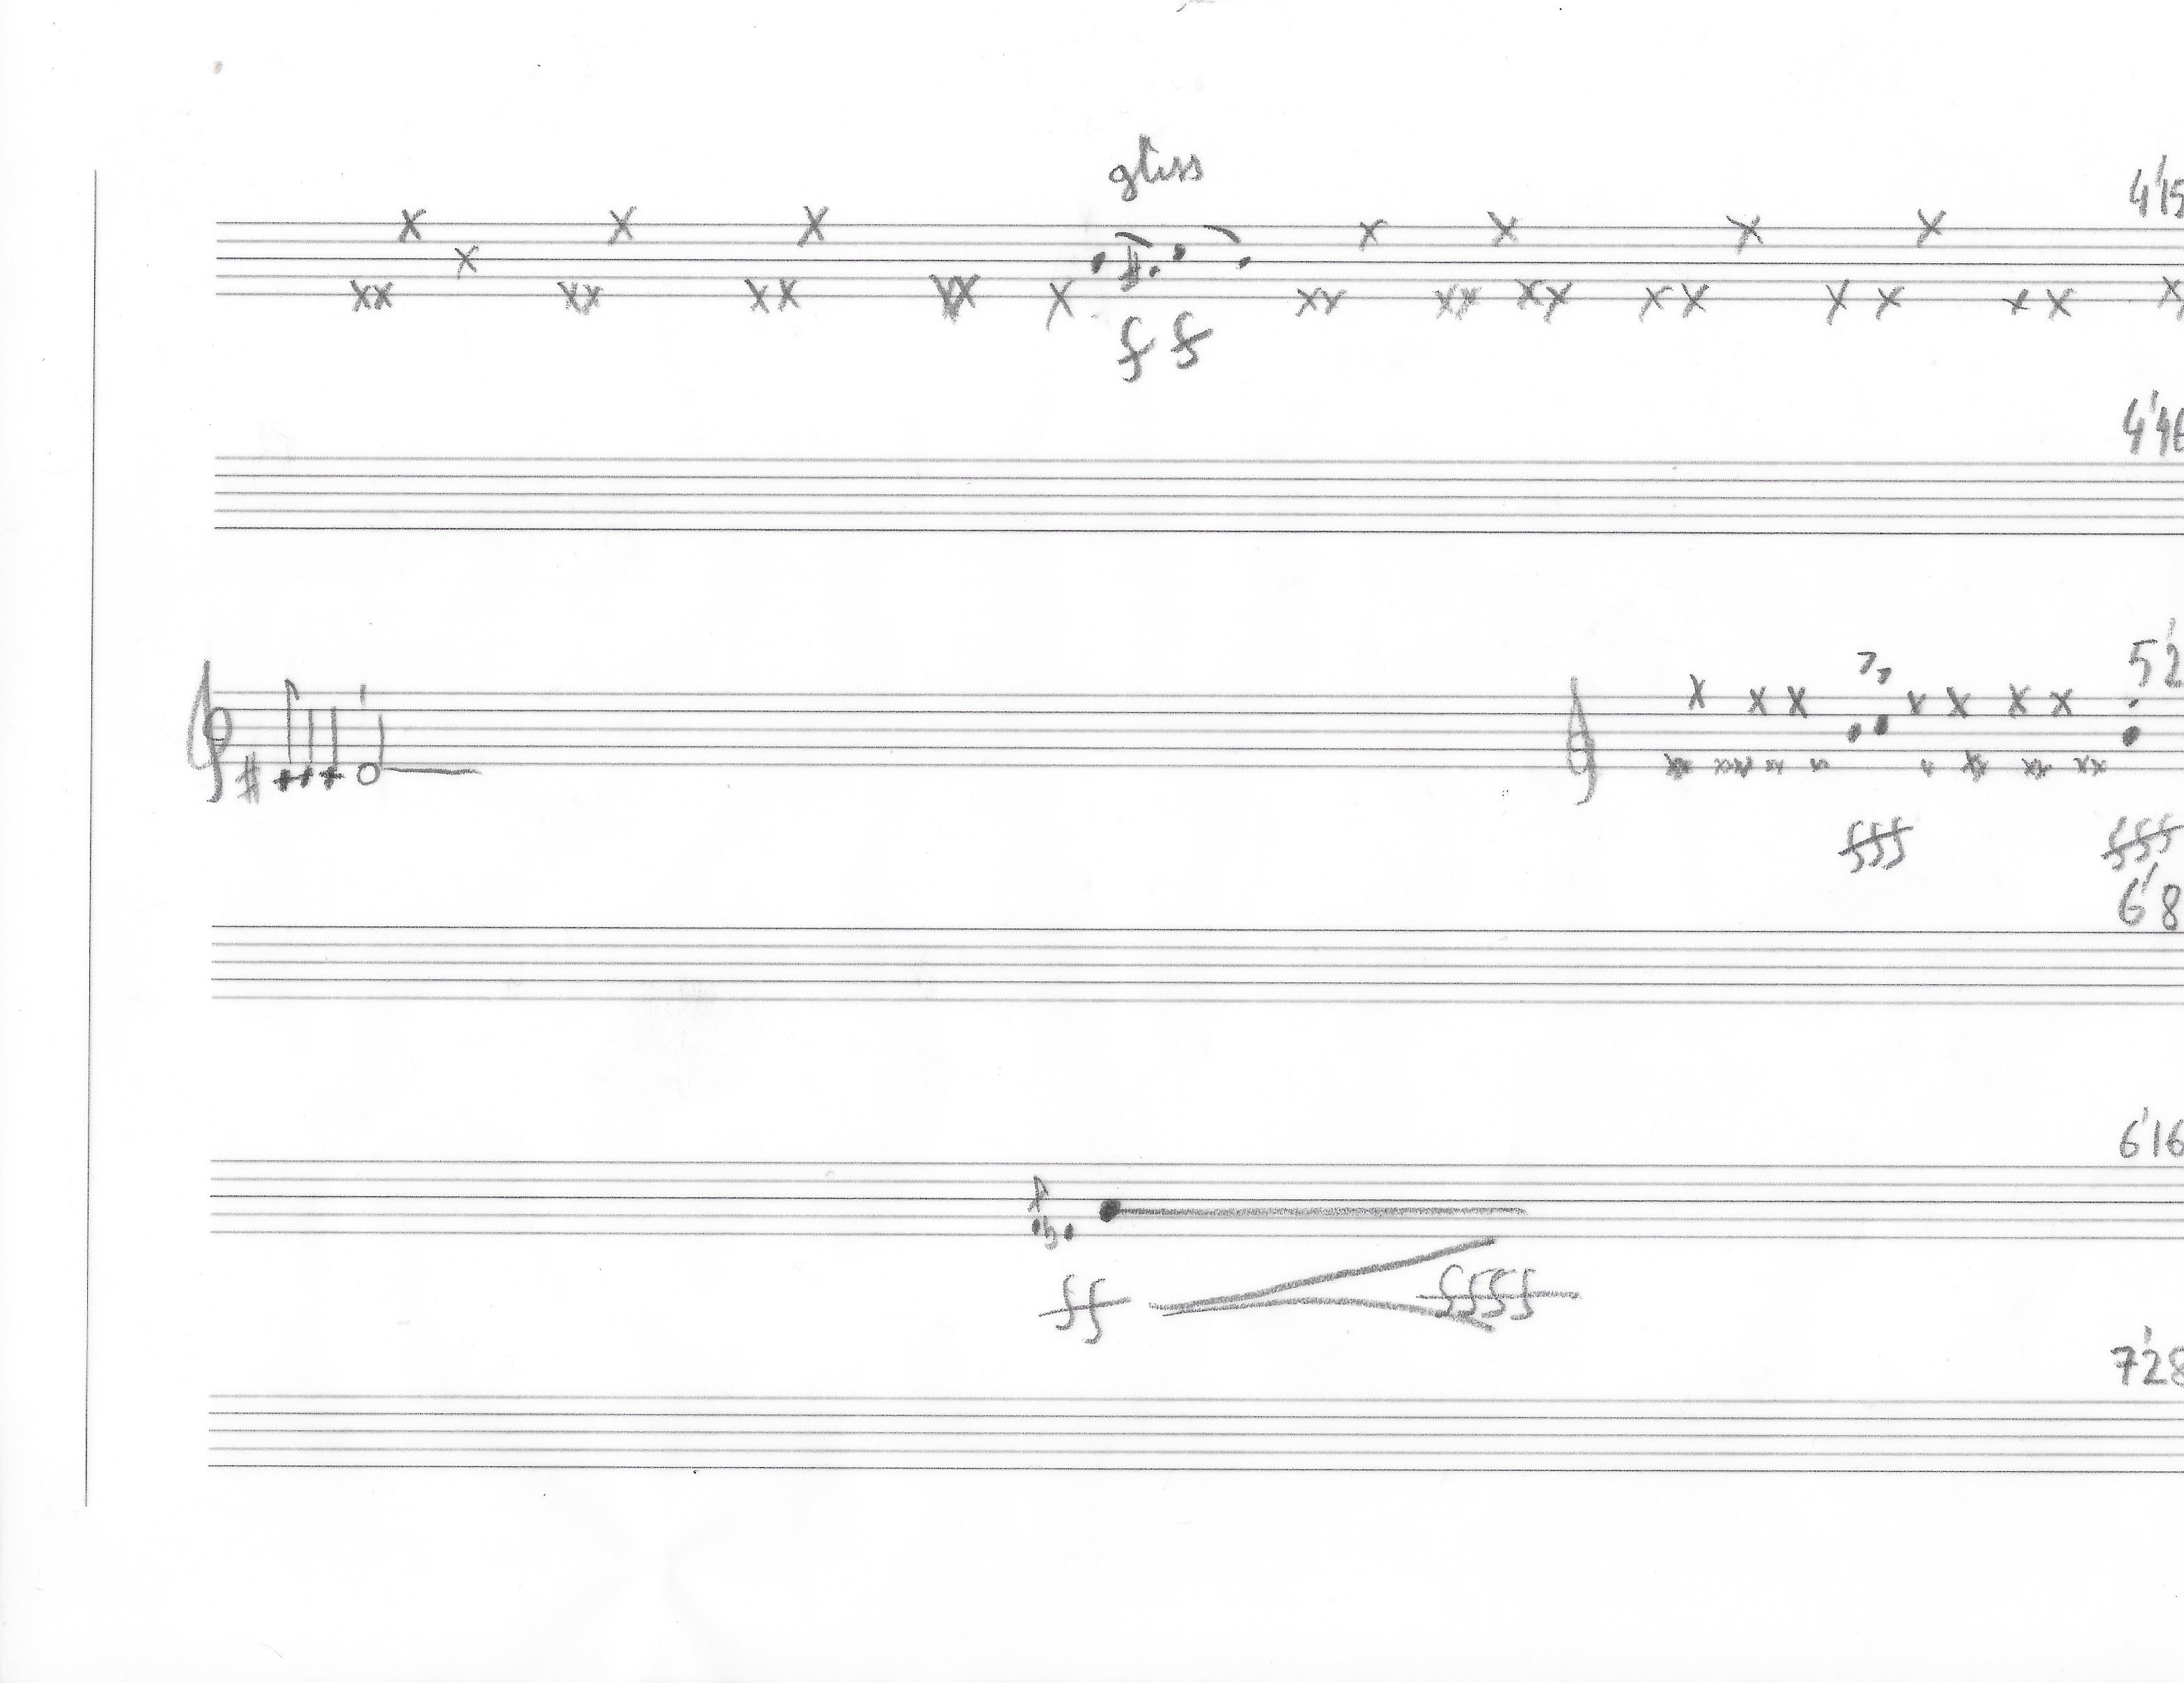 gliss
4'15
ff
4'46
fff
fff
6'8
6'16
ff ffff
7'28